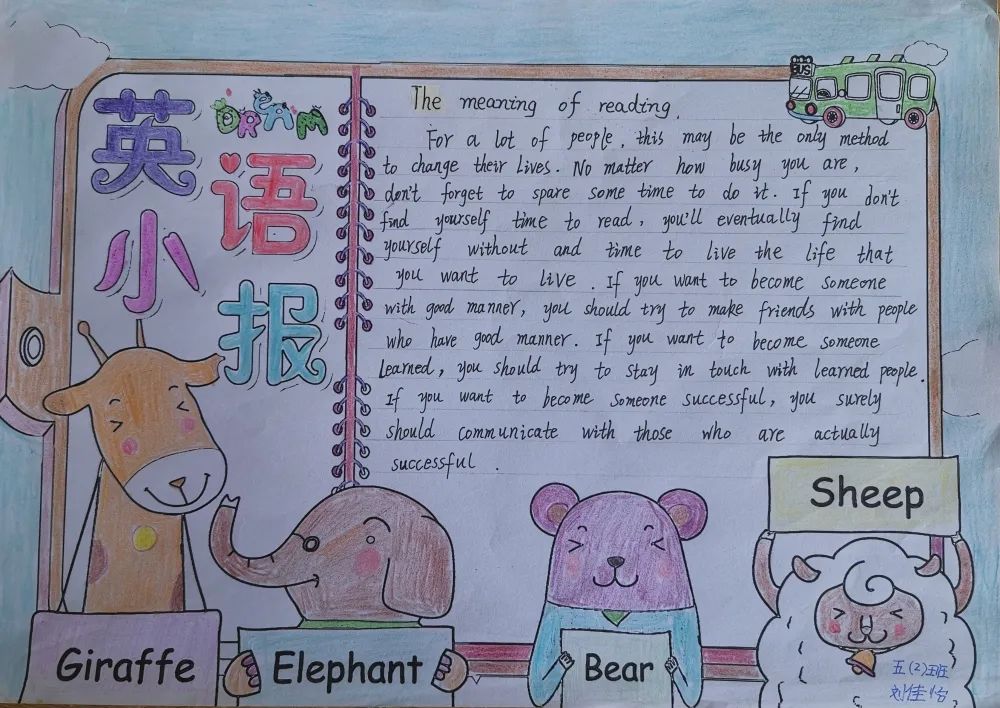 英
语
小
报
DREAM
BUS
The meaning of reading.
For a lot of people, this may be the only method
to change their lives. No matter how busy you are,
don't forget to spare some time to do it. If you don't
find yourself time to read, you'll eventually find
yourself without and time to live the life that
you want to live. If you want to become someone
with good manner, you should try to make friends with people
who have good manner. If you want to become someone
learned, you should try to stay in touch with learned people.
If you want to become someone successful, you surely
should communicate with those who are actually
successful.
Sheep
Giraffe
Elephant
Bear
五(2)班
刘佳怡